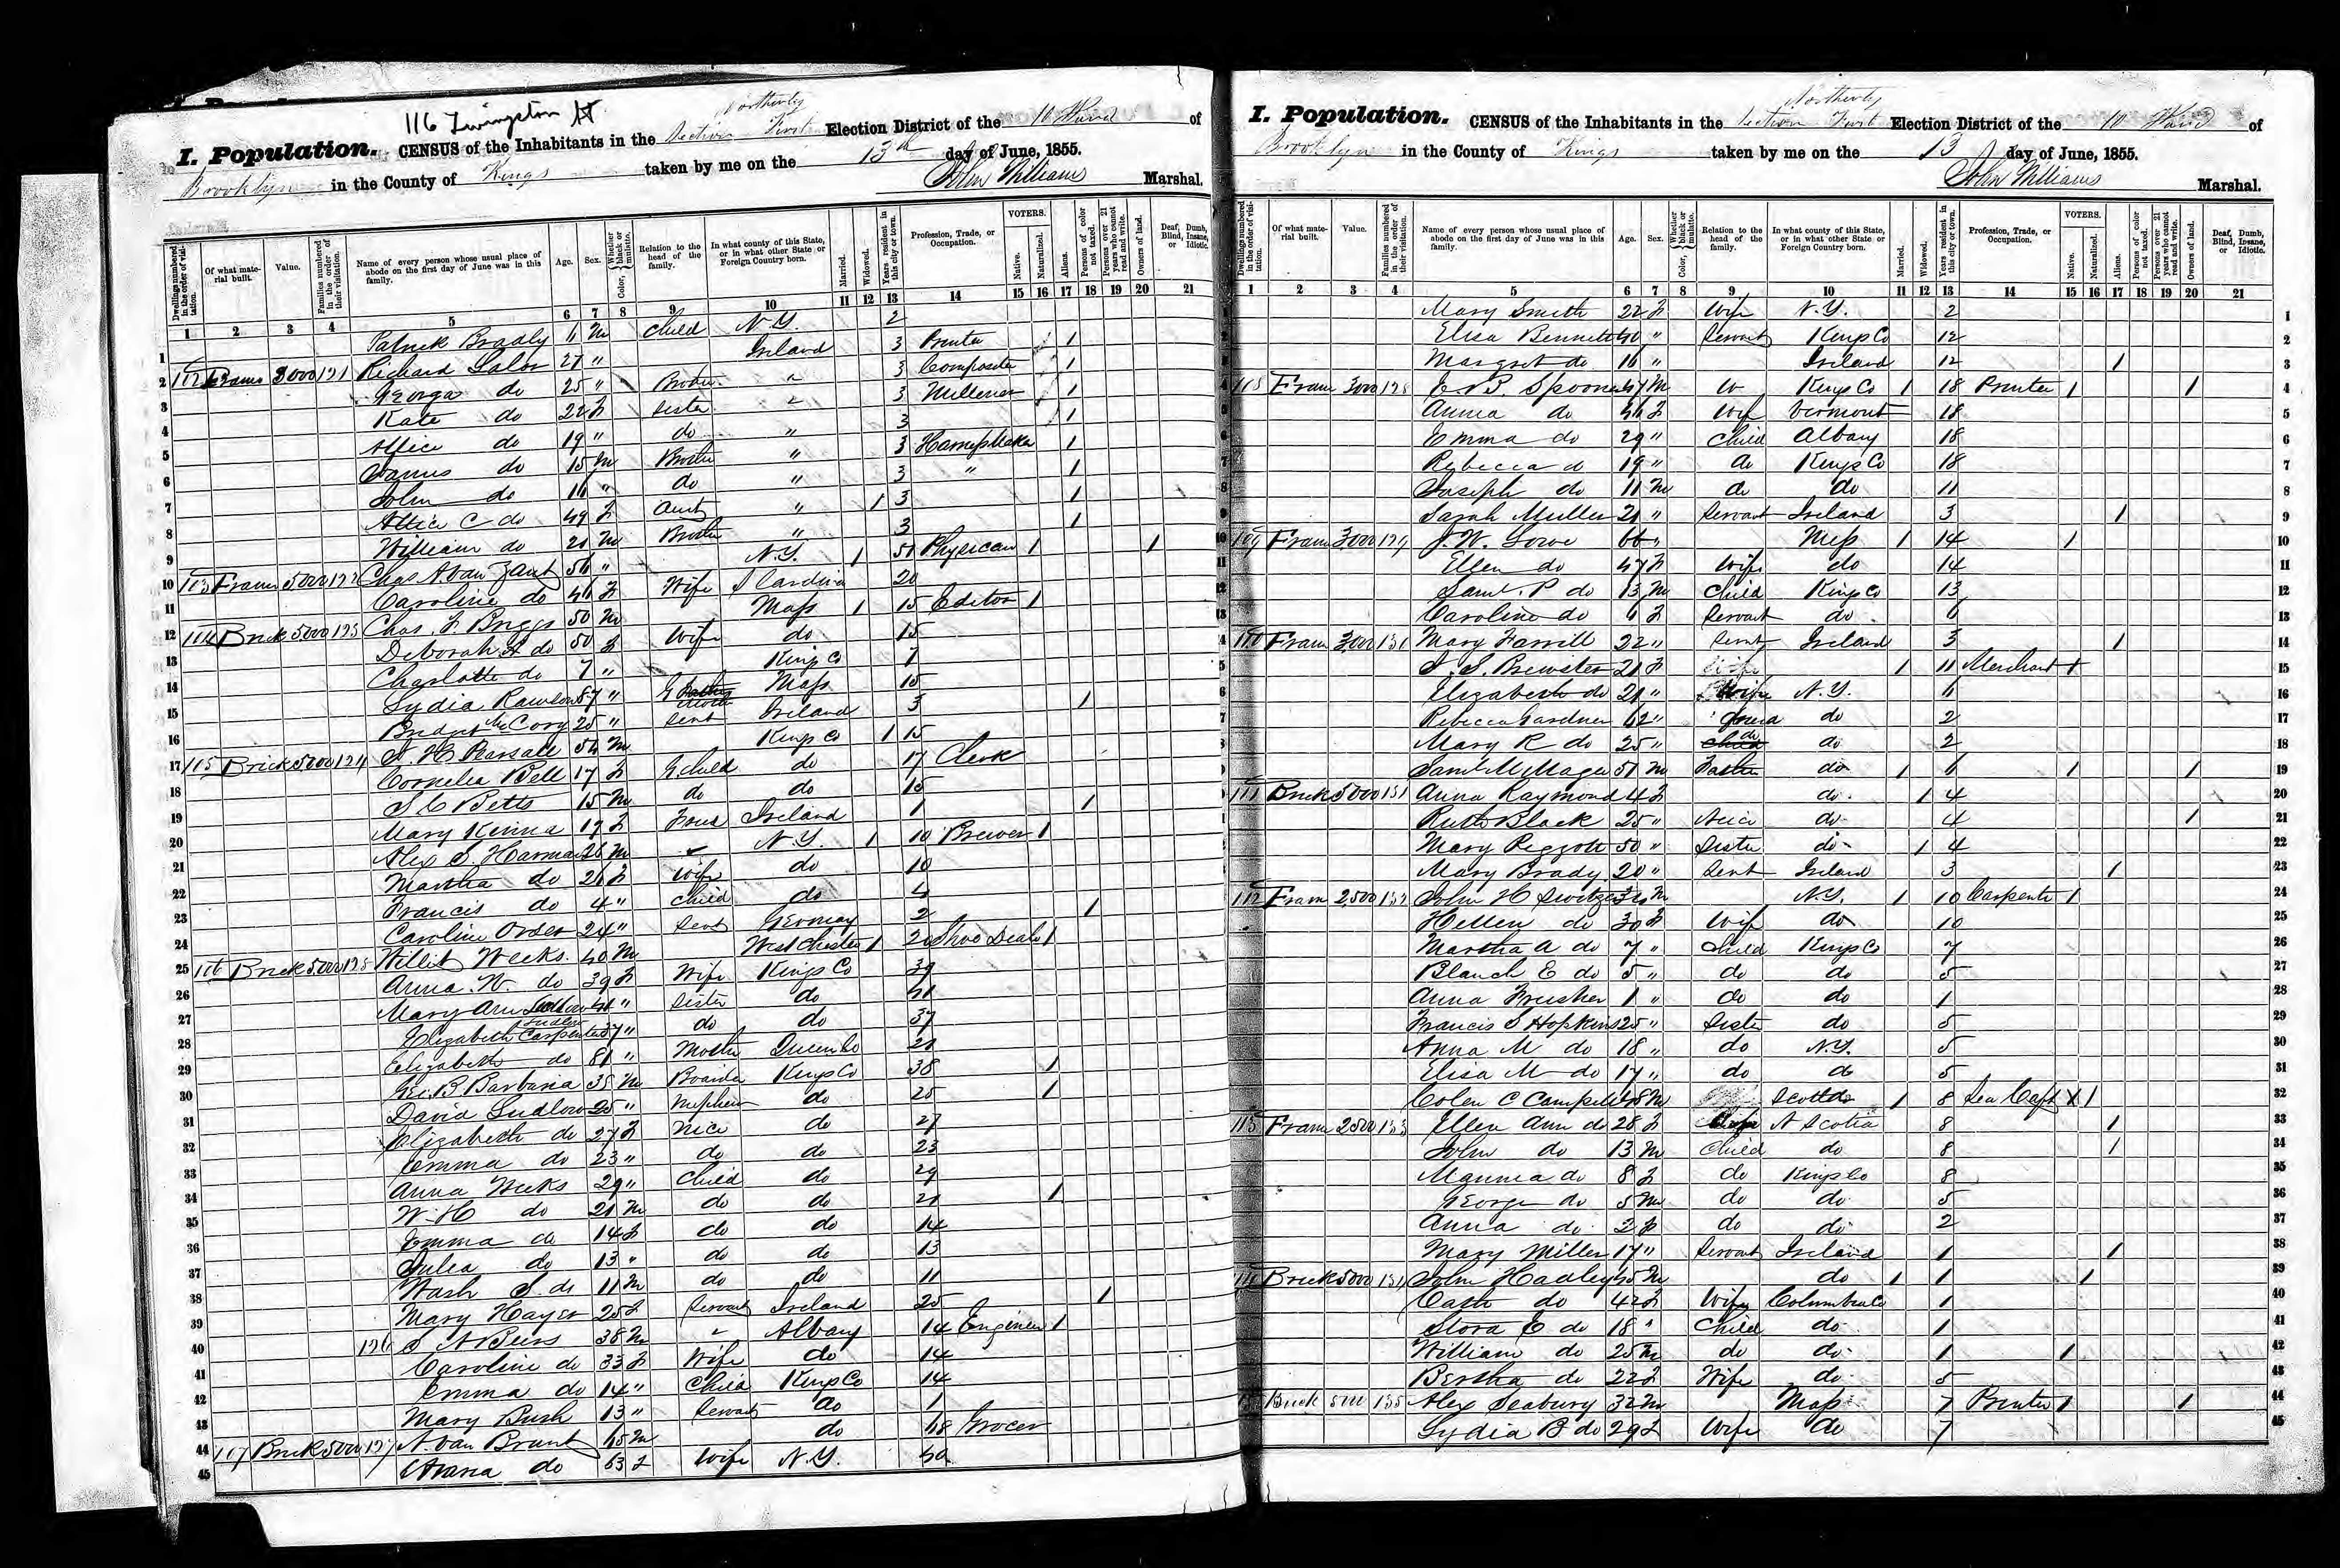 116 Livingston St
Northerly
I. Population. CENSUS of the Inhabitants in the Section First Election District of the 10 Ward of
Brooklyn in the County of Kings taken by me on the 13th day of June, 1855.
John Williams Marshal.
Dwellings numbered in the order of visitation. Of what material built. Value. Families numbered in the order of their visitation. Name of every person whose usual place of abode on the first day of June was in this family. Age. Sex. Color, Whether black or mulatto. Relation to the head of the family. In what county of this State, or in what other State or Foreign Country born. Married. Widowed. Years resident in this city or town. Profession, Trade, or Occupation. VOTERS. Native. Naturalized. Aliens. Persons of color not taxed. Persons over 21 years who cannot read and write. Owners of land. Deaf, Dumb, Blind, Insane, or Idiotic.
1 2 3 4 5 6 7 8 9 10 11 12 13 14 15 16 17 18 19 20 21
1 Patrick Bradly 6 M Child N.Y. 2
2 Frame 3000 121 Richard Lalor 27 " Ireland 3 Printer 1
3 George do 25 " Brother " 3 Compositor 1
4 Kate do 22 F Sister " 3 Milliner 1
5 Allice do 19 " do " 3 1
6 James do 15 M Brother " 3 Harness Maker 1
7 John do " do " 3 " 1
8 Allice C do 49 F Aunt " 1 3 1
9 William do 21 M Brother " 3 1
10 103 Frame 5000 122 Chas A Van Zant 56 " N.Y. 1 51 Physician 1 1
11 Caroline do 46 F Wife S Carolina 20
12 104 Brick 5000 123 Chas. F. Briggs 50 M Mass 1 15 Editor 1
13 Deborah do 50 F Wife do 15
14 Charlotte do 7 " Kings Co 7
15 Lydia Rawson 87 " G Mother Mass 15
16 Bridget McCory 25 " Servt Ireland 3 1
17 105 Brick 5000 124 Pearsall M Kings Co 1 15
18 Cornelia Bell 17 F G Child do 17 Clerk
19 S C Betts 15 M do do 15
20 Mary Kenna 17 F Ireland 1 1
21 Alex S. Harman 26 M N.Y. 1 10 Brewer 1
22 Martha do 26 F Wife do 10
23 Francis do 4 " Child do 4
24 Caroline 24 " Servt Germany 2 1
25 106 Brick 5000 125 Willit Weeks 40 M West Chester 1 Shoe Dealer 1
26 Anna W. do 39 F Wife Kings Co 39
27 Mary Ann Ludlow 41 " Sister do 41
28 Elizabeth Ludlow 37 " do do 37
29 Elizabeth Carpenter 81 " Mother Queens Co
30 Geo. B. 38 M Boarder Kings Co 38 1
31 David Ludlow 25 " Nephew do 25 1
32 Elizabeth do 27 F Niece do 27
33 Emma do 23 " do do 23
34 Anna Weeks 29 " Child do 29
35 W H do 21 M do do 21 1
36 Emma do 14 F do do 14
37 Julia do 13 " do do 13
38 Wash S. do 11 M do do 11
39 Mary Hayes 25 F Servant Ireland 25 1
40 126 S A 38 M Albany 14 Engineer 1
41 Caroline do 33 F Wife do 14
42 Emma do 14 " Child Kings Co 14
43 Mary Bush 13 " Servant do 1
44 107 Brick 5000 127 A. Van Brunt 65 M do Grocer
45 Maria do 63 F Wife N.Y.
Northerly
I. Population. CENSUS of the Inhabitants in the Section First Election District of the 10 Ward of
Brooklyn in the County of Kings taken by me on the 13 day of June, 1855.
John Williams Marshal.
Dwellings numbered in the order of visitation. Of what material built. Value. Families numbered in the order of their visitation. Name of every person whose usual place of abode on the first day of June was in this family. Age. Sex. Color, Whether black or mulatto. Relation to the head of the family. In what county of this State, or in what other State or Foreign Country born. Married. Widowed. Years resident in this city or town. Profession, Trade, or Occupation. VOTERS. Native. Naturalized. Aliens. Persons of color not taxed. Persons over 21 years who cannot read and write. Owners of land. Deaf, Dumb, Blind, Insane, or Idiotic.
1 2 3 4 5 6 7 8 9 10 11 12 13 14 15 16 17 18 19 20 21
Mary Smith 22 F Wife N.Y. 2 1
Elisa Bennett 40 " Servant Kings Co 12 2
Margret do 16 " Ireland 12 1 3
108 Frame 3000 128 E. B. Spooner 47 M Kings Co 1 18 Printer 1 1 4
Anna do 46 F Wife Vermont 18 5
Emma do 29 " Child Albany 18 6
Rebecca do 19 " do Kings Co 18 7
Joseph do 11 M do do 11 8
Sarah Muller 21 " Servant Ireland 3 1 9
109 Frame 3000 129 J. W. Lowe 66 " Mass 1 14 1 10
Ellen do 47 F Wife do 14 11
Saml. P do 13 M Child Kings Co 13 12
Caroline do 6 F Servant do 6 13
110 Frame 3000 130 Mary Farrill 22 " Servt Ireland 3 1 14
S. S. Brewster 21 F 1 11 Merchant 1 15
Elizabeth do 21 " Wife N.Y. 6 16
Rebecca Gardner 62 " do 2 17
Mary R do 25 " do do 2 18
Saml M Magee 51 M Father do 1 6 1 1 19
111 Brick 5000 131 Anna Raymond F do 1 4 20
Ruth Black 25 " Niece do 4 1 21
Mary Piggott 50 " Sister do 1 4 22
Mary Brady 20 " Servt Ireland 3 1 23
112 Frame 2,500 132 John H Switzer M N.Y. 1 10 Carpenter 1 24
Hellen do 30 F Wife do 10 25
Martha A do 7 " Child Kings Co 7 26
Blanch E do 5 " do do 5 27
Anna 1 " do do 1 28
Francis S Hopkins 25 " Sister do 5 29
Anna M do 18 " do N.Y. 5 30
Elisa M do 17 " do do 5 31
Colen C Campell 48 M Scotld 1 8 Sea Capt X 1 32
113 Frame 2500 133 Ellen Ann do 28 F Wife N Scotia 8 1 33
John do 13 M Child do 8 1 34
Mannia do 8 F do Kings Co 8 35
George do 5 M do do 5 36
Anna do 2 F do do 2 37
Mary Miller 17 " Servant Ireland 1 1 38
114 Brick 5000 134 John Hadley 45 M do 1 1 1 39
Cath do 42 F Wife Columbia Co 1 40
Stora E do 18 " Child do 1 41
William do 25 M do do 1 1 42
Bertha do 22 F Wife do 5 43
Brick 5000 135 Alex Seabury 32 M Mass 7 Printer 1 1 44
Lydia B do 29 F Wife do 7 45